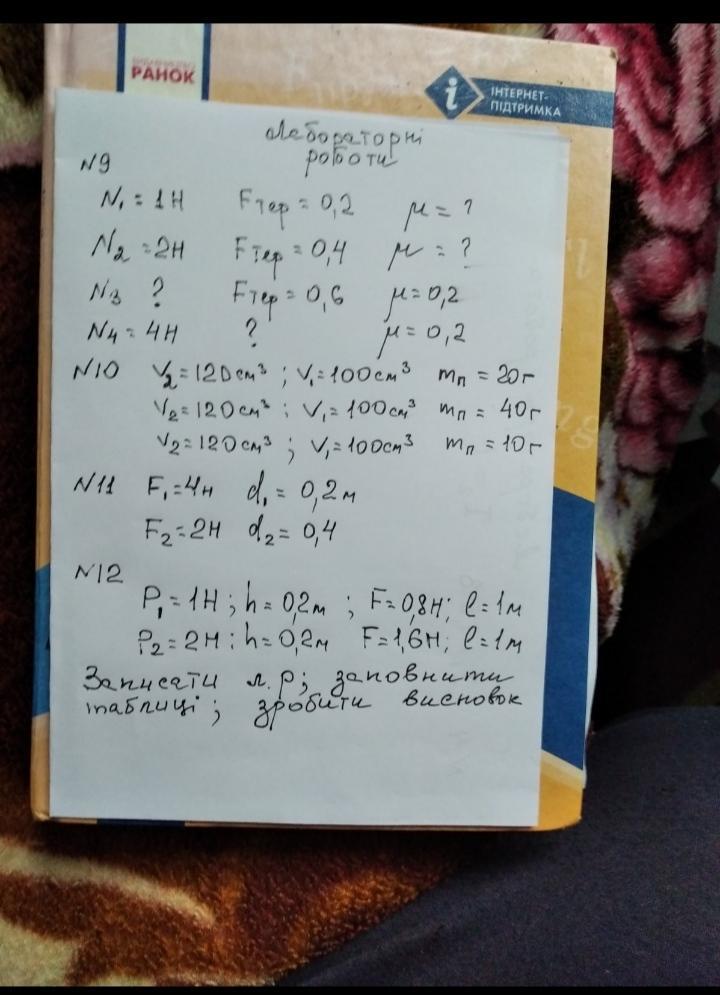 РАНОК
ІНТЕРНЕТ-
ПІДТРИМКА
Лабораторні
роботи
N9
N₁ = 1Н Fтер = 0,2 μ = ?
N₂ = 2Н Fтер = 0,4 μ = ?
N₃ ? Fтер = 0,6 μ = 0,2
N₄ = 4Н ? μ = 0,2
N10 V₂ = 120см³ ; V₁ = 100см³ mп = 20г
V₂ = 120см³ ; V₁ = 100см³ mп = 40г
V₂ = 120см³ ; V₁ = 100см³ mп = 10г
N11 F₁ = 4н d₁ = 0,2м
F₂ = 2Н d₂ = 0,4
N12
P₁ = 1Н ; h = 0,2м ; F = 0,8Н ; l = 1м
P₂ = 2Н : h = 0,2м F = 1,6Н ; l = 1м
Записати л.р ; заповнити
таблиці ; зробити висновок